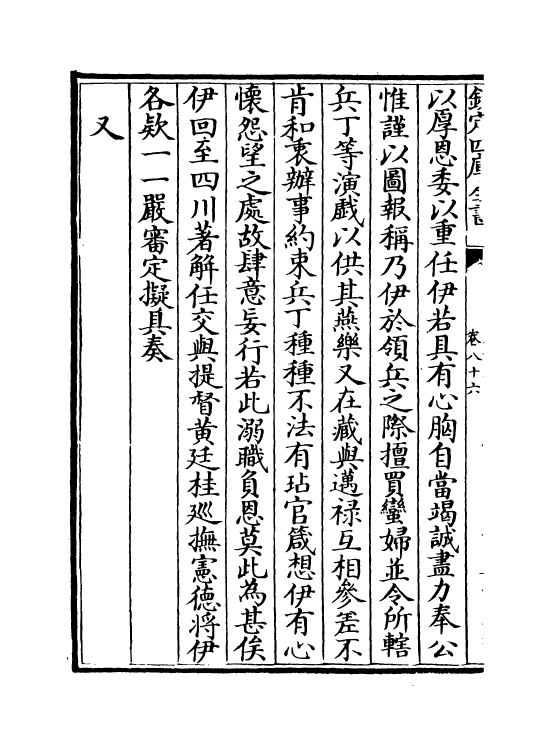 欽定四庫全書
卷八十六
以厚恩委以重任伊若具有心胸自當竭誠盡力奉公
惟謹以圖報稱乃伊於領兵之際擅買蠻婦並令所轄
兵丁等演戲以供其燕樂又在藏與邁祿互相參差不
肯和衷辦事約束兵丁種種不法有玷官箴想伊有心
懷怨望之處故肆意妄行若此溺職負恩莫此為甚俟
伊回至四川著解任交與提督黃廷桂廵撫憲德將伊
各欵一一嚴審定擬具奏
又